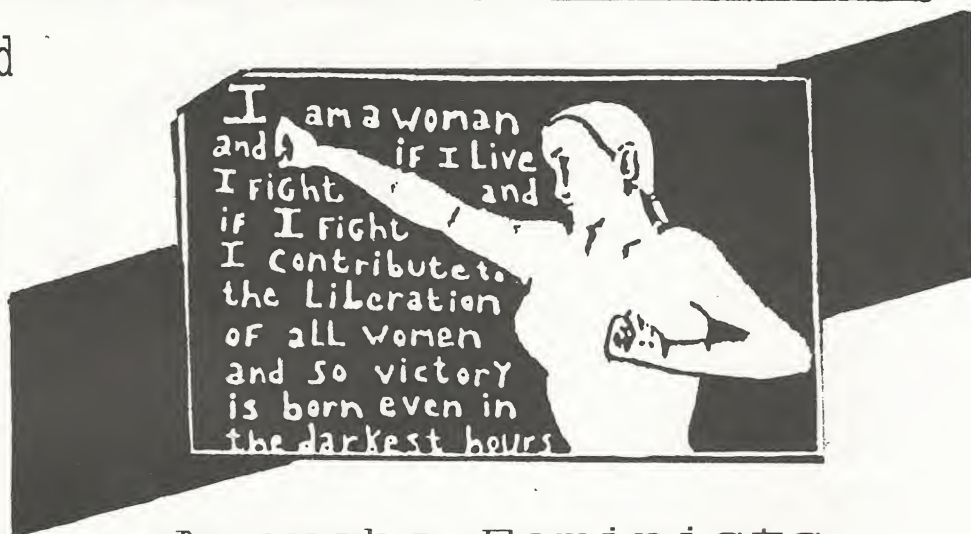 d
I am a woman
and if I Live
I Fight and
if I Fight
I contribute to
the Liberation
of all women
and so victory
is born even in
the darkest hours